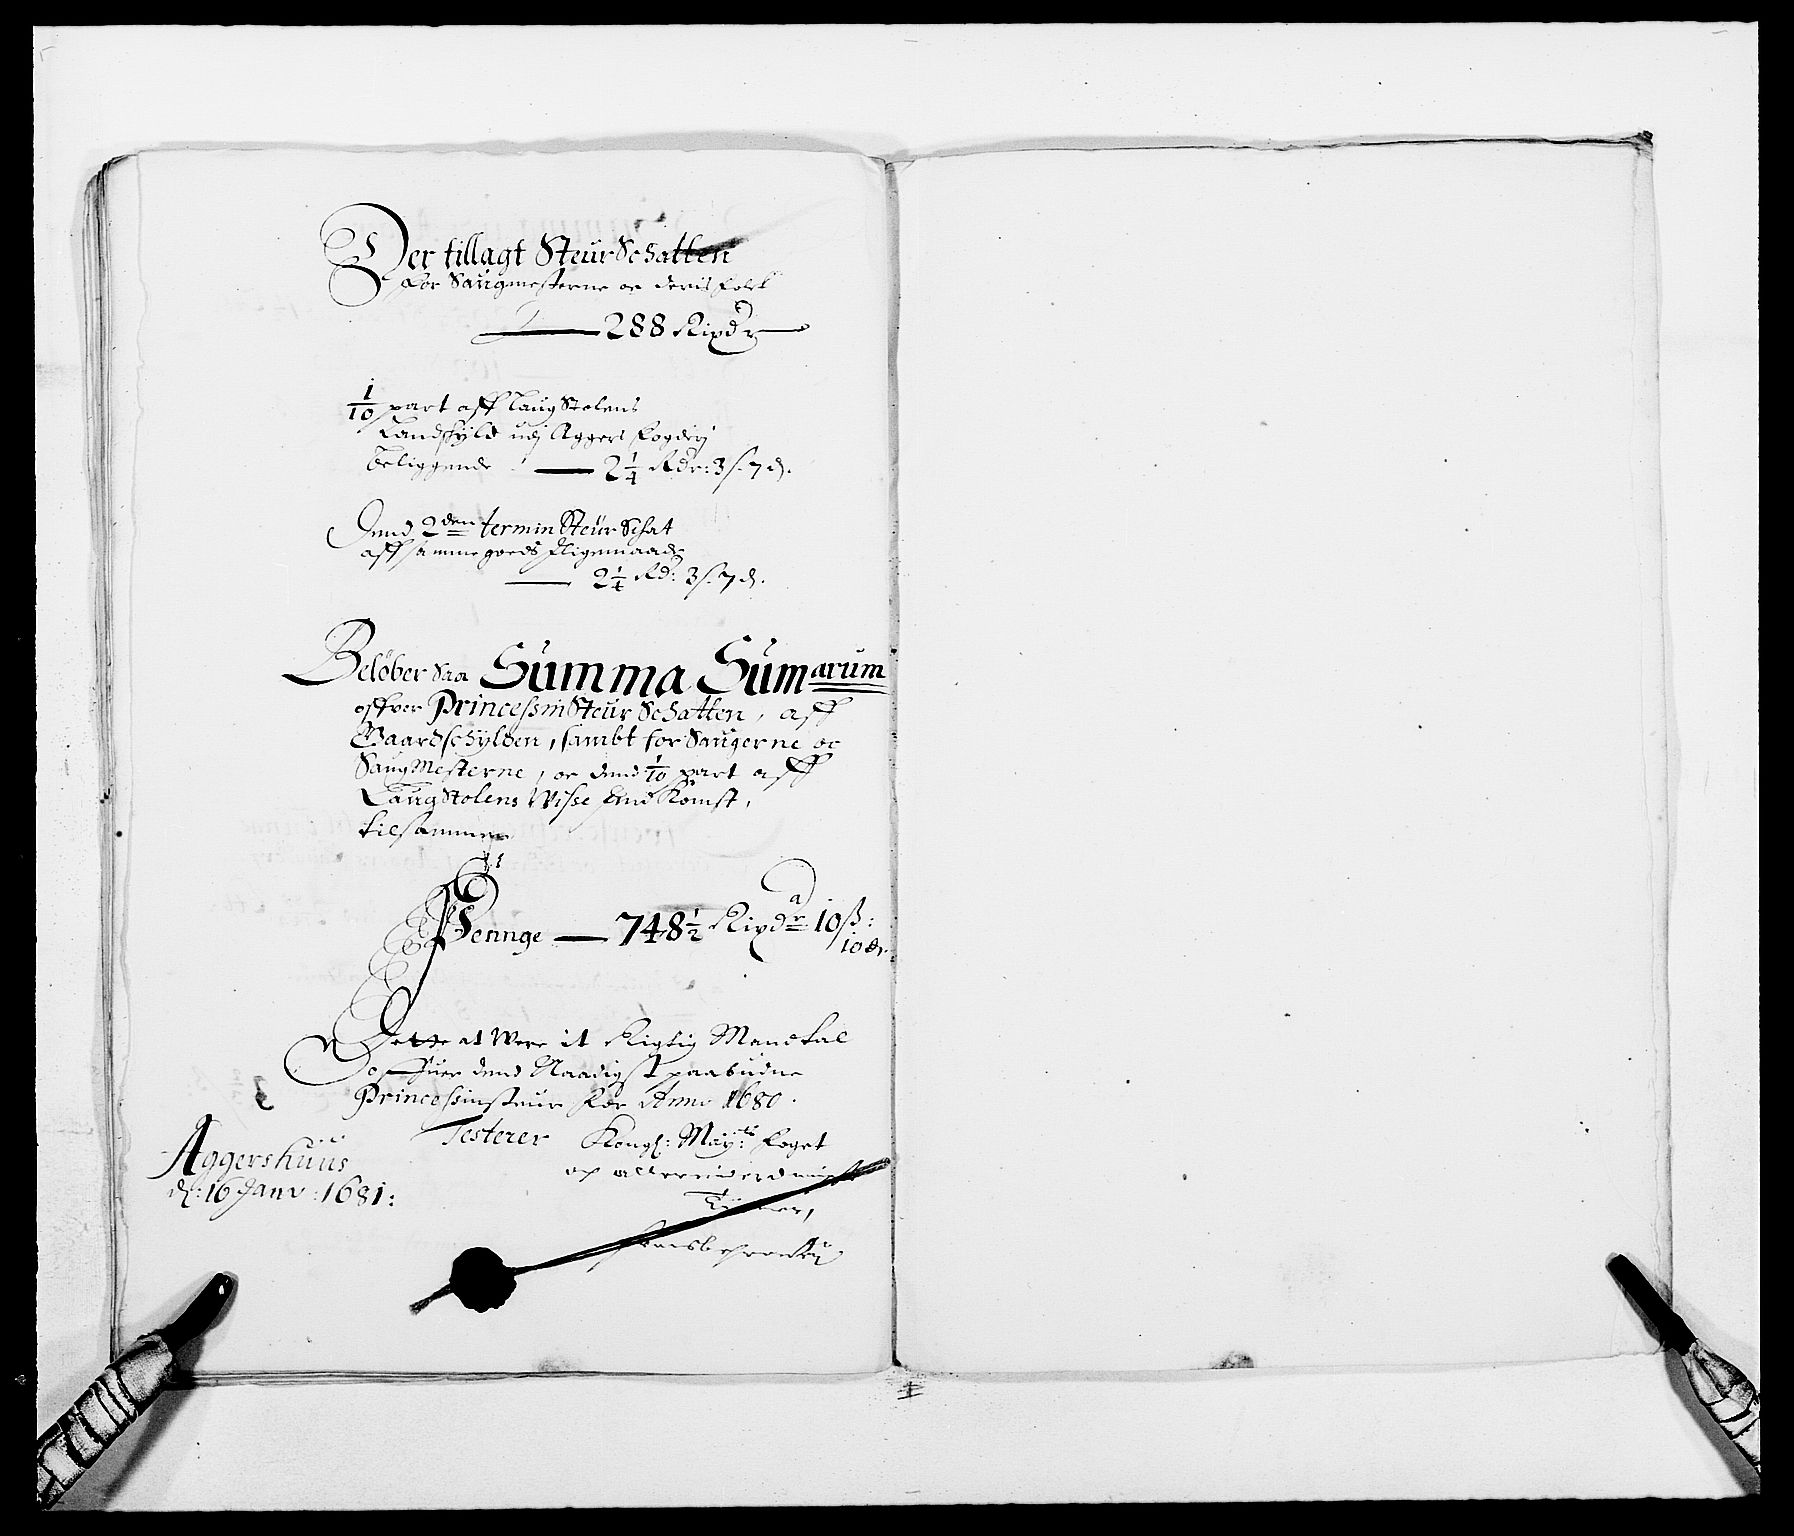 Der tillagt SteurSchatten
for Saugmesterne oc deris folck
288 Rixdr
1/10 part aff Laugstolens
Landschyld udj Aggers fogderj
beliggende 2 1/4 Rdr: 3 s. 7 d.
Dend 2den termin SteurSchat
aff samme goeds sligemaade
2 1/4 Rd: 3 s. 7 d.
Beløber saa Summa Sumarum
offver PrincessinSteurSchatten, aff
Gaardschylden, sambt for Saugerne oc
SaugMesterne, oc dend 1/10 part aff
Laugstolens Visse Ind Komst,
tilsammen
Pennge 748 1/2 Rixdr 10 ß:
10 dr.
Dette at were it Rigtig Mandtal
offuer dend Naadigst paabudne
Princessinsteur for Anno 1680.
Testerer Kongl: Mayts: foget
Aggershuus
d: 16 Janv: 1681: